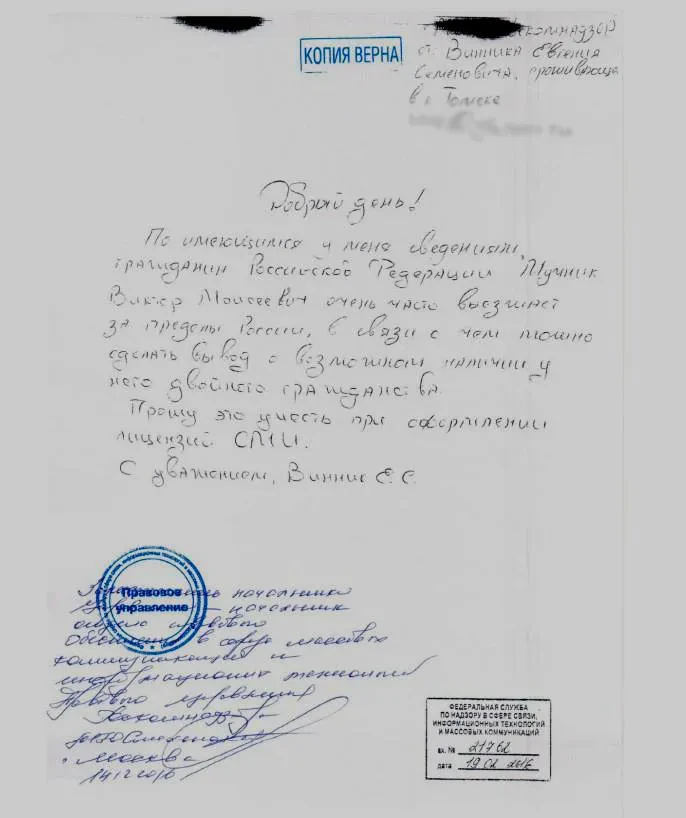 комнадзор
КОПИЯ ВЕРНА
от Винника Евгения
Семеновича, проживающе
в г. Томске
Добрый день!
По имеющимся у меня сведениям,
гражданин Российской Федерации Мучник
Виктор Моисеевич очень часто выезжает
за пределы России, в связи с чем можно
сделать вывод о возможном наличии у
него двойного гражданства.
Прошу это учесть при оформлении
лицензий СМИ.
С уважением, Винник Е. С.
Правовое
управление
начальника
начальник
отдела правового
в сфере массовых
коммуникаций и
информационных технологий
Правового управления
Роскомнадзора
Москва
ФЕДЕРАЛЬНАЯ СЛУЖБА
ПО НАДЗОРУ В СФЕРЕ СВЯЗИ,
ИНФОРМАЦИОННЫХ ТЕХНОЛОГИЙ
И МАССОВЫХ КОММУНИКАЦИЙ
вх. № 21762
дата 19 02